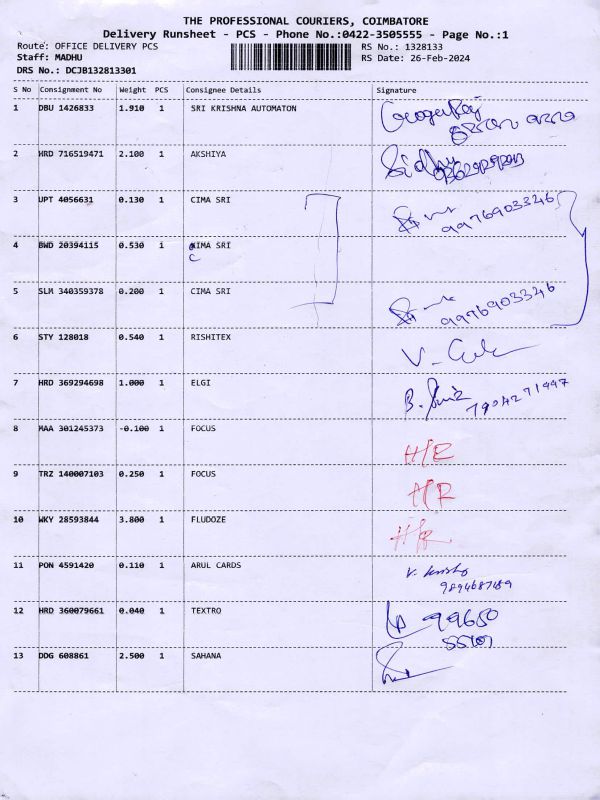 THE PROFESSIONAL COURIERS, COIMBATORE
Delivery Runsheet - PCS - Phone No.:0422-3505555 - Page No.:1
Route: OFFICE DELIVERY PCS RS No.: 1328133
Staff: MADHU RS Date: 26-Feb-2024
DRS No.: DCJB132813301
S No Consignment No Weight PCS Consignee Details Signature
1 DBU 1426833 1.910 1 SRI KRISHNA AUTOMATON
2 HRD 716519471 2.100 1 AKSHIYA Sidhu
3 UPT 4056631 0.130 1 CIMA SRI
9976903346
4 BWD 20394115 0.530 1 KIMA SRI
C
5 SLM 340359378 0.200 1 CIMA SRI
9976903346
6 STY 128018 0.540 1 RISHITEX
7 HRD 369294698 1.000 1 ELGI
7904271997
8 MAA 301245373 -0.100 1 FOCUS
H/R
9 TRZ 140007103 0.250 1 FOCUS
H/R
10 WKY 28593844 3.800 1 FLUDOZE
H/R
11 PON 4591420 0.110 1 ARUL CARDS
12 HRD 360079661 0.040 1 TEXTRO
99650
13 DDG 608861 2.500 1 SAHANA